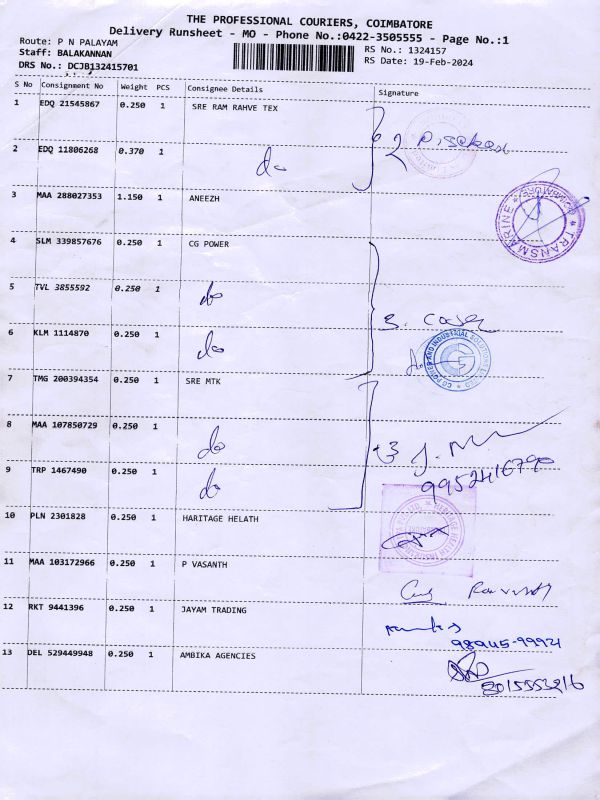 THE PROFESSIONAL COURIERS, COIMBATORE
Delivery Runsheet - MO - Phone No.:0422-3505555 - Page No.:1
Route: P N PALAYAM
RS No.: 1324157
Staff: BALAKANNAN
RS Date: 19-Feb-2024
DRS No.: DCJB132415701
S No Consignment No Weight PCS Consignee Details Signature
1 EDQ 21545867 0.250 1 SRE RAM RAHVE TEX
2 EDQ 11806268 0.370 1 do
3 MAA 288027353 1.150 1 ANEEZH
TRANSMARINE
4 SLM 339857676 0.250 1 CG POWER
5 TVL 3855592 0.250 1 do
6 KLM 1114870 0.250 1 do
CG POWER AND INDUSTRIAL SOLUTIONS LIMITED
7 TMG 200394354 0.250 1 SRE MTK
8 MAA 107850729 0.250 1 do
9 TRP 1467490 0.250 1 do
9952416790
10 PLN 2301828 0.250 1 HARITAGE HELATH
11 MAA 103172966 0.250 1 P VASANTH
12 RKT 9441396 0.250 1 JAYAM TRADING
98945-99921
13 DEL 529449948 0.250 1 AMBIKA AGENCIES
8015553216